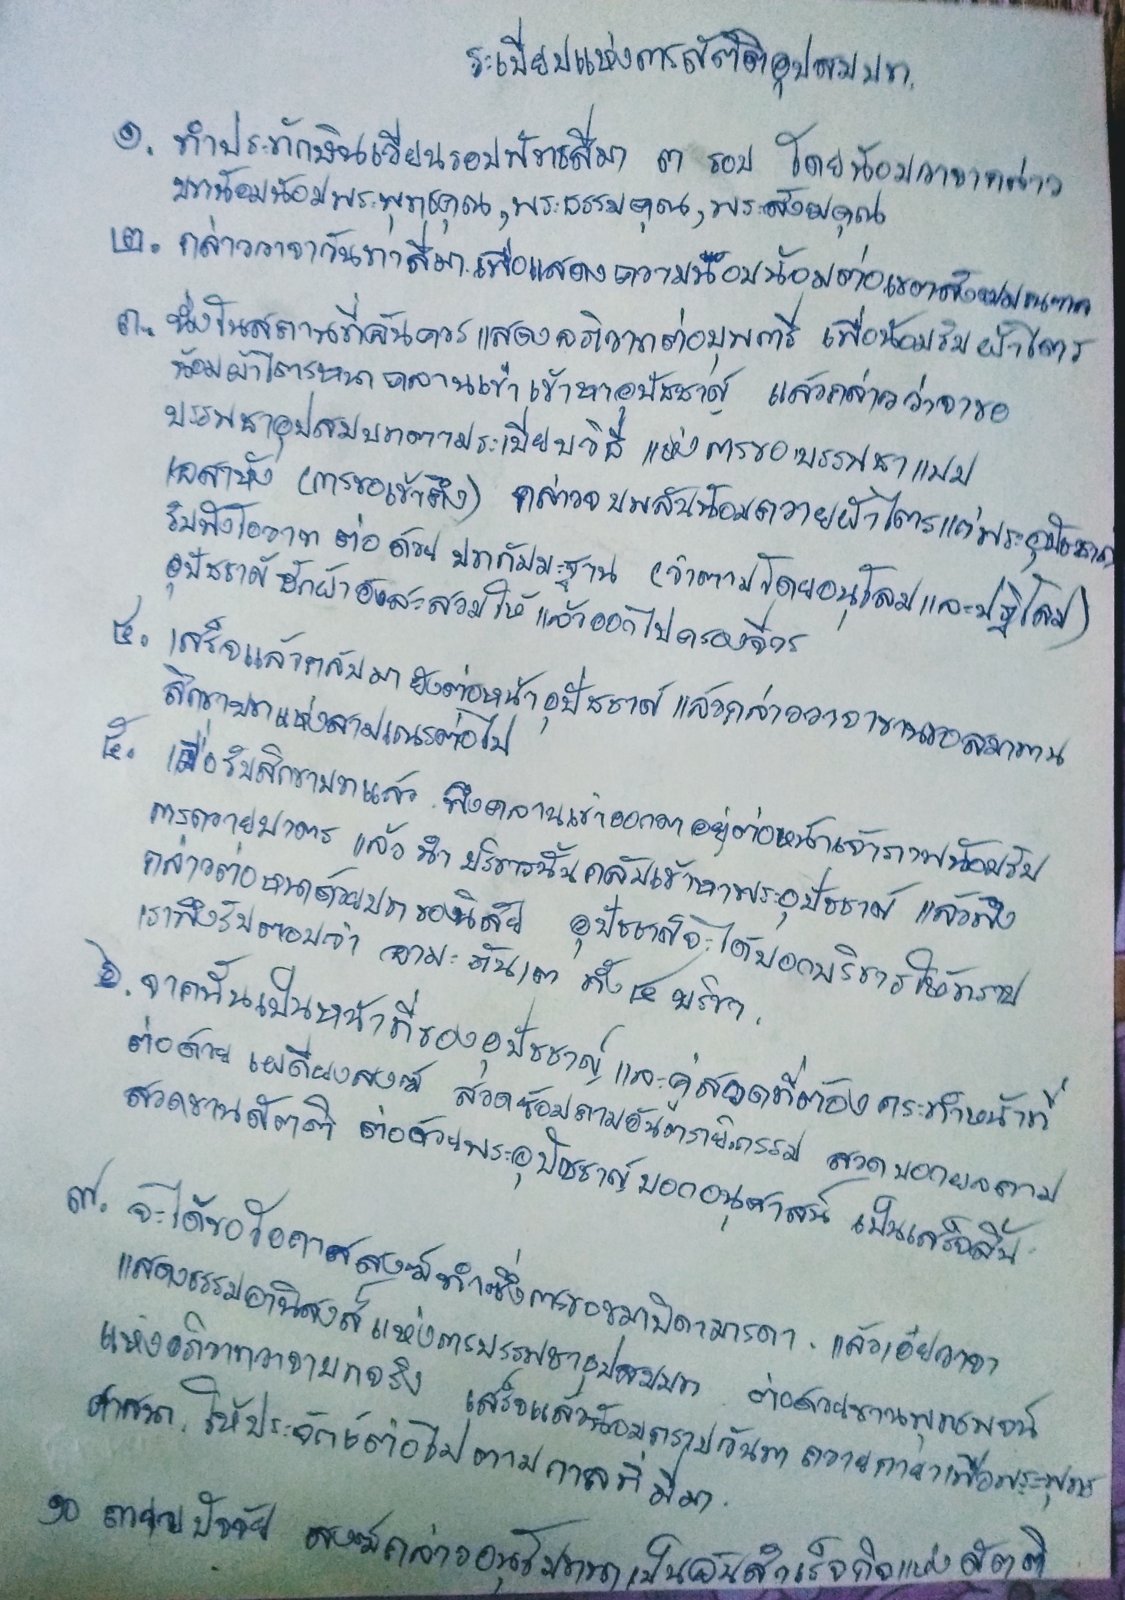 ระเบียบแห่งการญัตติอุปสมบท.
๑. ทำประทักษิณเวียนรอบพัทธสีมา ๓ รอบ โดยน้อมวาจากล่าว
บทน้อมน้อมพระพุทธคุณ, พระธรรมคุณ, พระสังฆคุณ
๒. กล่าววาจาวันทาสีมา เพื่อแสดงความน้อมน้อมต่อเขต
๓. นั่งในสถานที่อันควร แสดงอภิวาทต่อบุพการี เพื่อน้อมรับผ้าไตร
น้อมผ้าไตรหมาคลานเข่าเข้าหาอุปัชฌาย์ แล้วกล่าววาจาขอ
บรรพชาอุปสมบทตามระเบียบวิธี แห่งการขอบรรพชาแบบ
เอสาหัง (การขอเข้าถึง) กล่าวจบพลันน้อมถวายผ้าไตรแด่พระอุปัชฌาย์
รับฟังโอวาท ต่อด้วย บทกัมมะฐาน (ว่าตามโดยอนุโลมและปฏิโลม)
อุปัชฌาย์ชักผ้าอังสะสวมให้ แล้วออกไปครองจีวร
๔. เสร็จแล้วกลับมายังต่อหน้าอุปัชฌาย์ แล้วกล่าววาจาขานขอสมาทาน
สิกขาบทแห่งสามเณรต่อไป
๕. เมื่อรับสิกขาบทแล้ว พึงคลานเข่าออกมาอยู่ต่อหน้าเจ้าภาพน้อมรับ
การถวายบาตร แล้วนำบริขารนั้นกลับเข้าหาพระอุปัชฌาย์ แล้วพึง
กล่าวต่อหน้าด้วยบทขอนิสัย อุปัชฌาย์จะได้บอกบริขารให้ทราบ
เราพึงรับตอบว่า อามะ ภันเต ทั้ง ๔ บริขา.
๖. จากนั้นเป็นหน้าที่ของอุปัชฌาย์ และคู่สวดที่ต้องกระทำหน้าที่
ต่อด้วย เผดียงสงฆ์ สวดซ้อมถามอันตรายิกธรรม สวดบอกผลถาม
สวดขานญัตติ ต่อด้วยพระอุปัชฌาย์บอกอนุศาสน์ เป็นเสร็จสิ้น.
๗. จะได้ขอโอกาสสงฆ์ทำซึ่งการขอขมาบิดามารดา. แล้วเอ่ยวาจา
แสดงธรรมอานิสงส์แห่งการบรรพชาอุปสมบท ต่อด้วยขานพุทธพจน์
แห่งอภิวาทวาจาบทจริง เสร็จแล้วน้อมกราบวันทา ถวายกายาเพื่อพระพุทธ
ศาสนา ให้ประจักษ์ต่อไปตามกาลที่มีมา.
ปัจจัย สงฆ์กล่าวอนุโมทนาเป็นอันสำเร็จกิจแห่งญัตติ